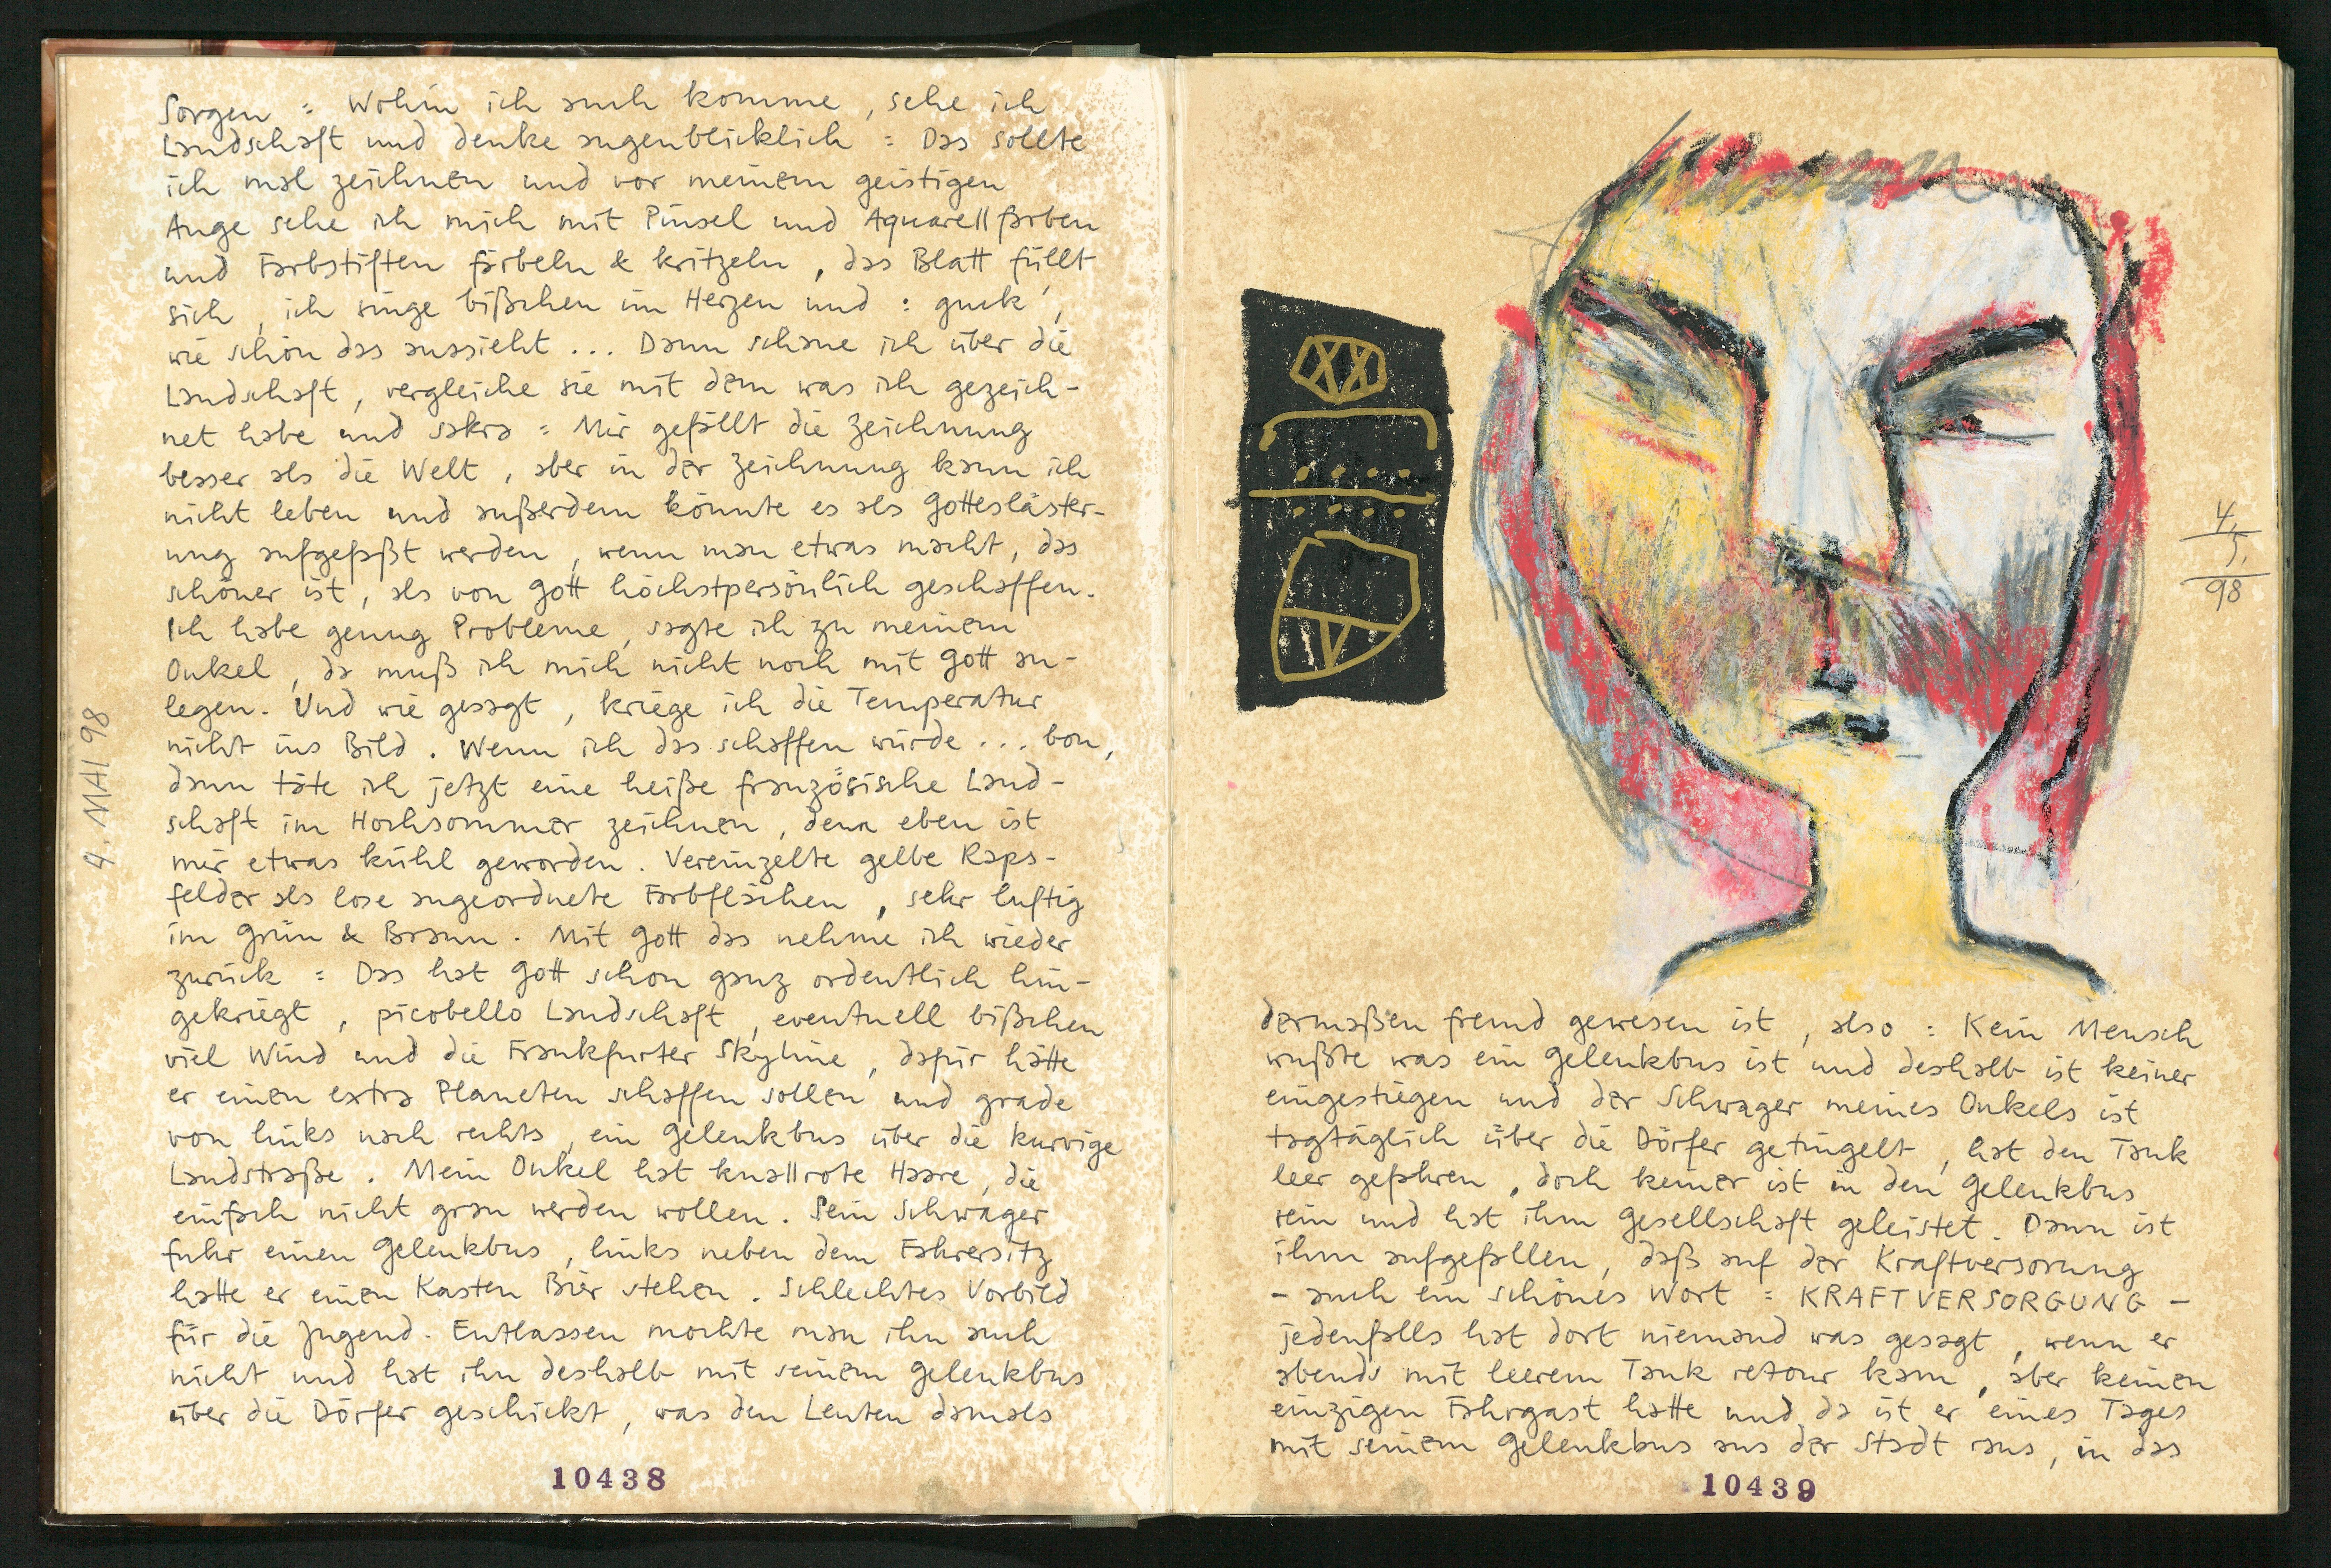 Sorgen : Wohin ich auch komme, sehe ich
Landschaft und denke augenblicklich : Das sollte
ich mal zeichnen und vor meinem geistigen
Auge sehe ich mich mit Pinsel und Aquarellfarben
und Farbstiften färbeln & kritzeln, das Blatt füllt
sich, ich singe bißchen im Herzen und : guck,
wie schön das aussieht ... Dann schaue ich über die
Landschaft, vergleiche sie mit dem was ich gezeich-
net habe und sakra : Mir gefällt die Zeichnung
besser als die Welt, aber in der Zeichnung kann ich
nicht leben und außerdem könnte es als Gottesläster-
ung aufgefaßt werden, wenn man etwas macht, das
schöner ist, als von Gott höchstpersönlich geschaffen.
Ich habe genug Probleme, sagte ich zu meinem
Onkel, da muß ich mich nicht noch mit Gott an-
legen. Und wie gesagt, kriege ich die Temperatur
nicht ins Bild. Wenn ich das schaffen würde ... bon,
dann täte ich jetzt eine heiße französische Land-
schaft im Hochsommer zeichnen, denn eben ist
mir etwas kühl geworden. Vereinzelte gelbe Raps-
felder als lose angeordnete Farbflächen, sehr luftig
im Grün & Braun. Mit Gott das nehme ich wieder
zurück : Das hat Gott schon ganz ordentlich hin-
gekriegt, picobello Landschaft, eventuell bißchen
viel Wind und die Frankfurter Skyline, dafür hätte
er einen extra Planeten schaffen sollen und grade
von links nach rechts, ein Gelenkbus über die kurvige
Landstraße. Mein Onkel hat knallrote Haare, die
einfach nicht grau werden wollen. Sein Schwager
fuhr einen Gelenkbus, links neben dem Fahrersitz
hatte er einen Kasten Bier stehen. Schlechtes Vorbild
für die Jugend. Entlassen mochte man ihn auch
nicht und hat ihn deshalb mit seinem Gelenkbus
über die Dörfer geschickt, was den Leuten damals
10438
4. MAI 98
4.
5.
98
dermaßen fremd gewesen ist, also : Kein Mensch
wußte was ein Gelenkbus ist und deshalb ist keiner
eingestiegen und der Schwager meines Onkels ist
tagtäglich über die Dörfer getingelt, hat den Tank
leer gefahren, doch keiner ist in den Gelenkbus
rein und hat ihm Gesellschaft geleistet. Dann ist
ihm aufgefallen, daß auf der Kraftversorung
- auch ein schönes Wort : KRAFTVERSORGUNG -
jedenfalls hat dort niemand was gesagt, wenn er
abends mit leerem Tank retour kam, aber keinen
einzigen Fahrgast hatte und da ist er eines Tages
mit seinem Gelenkbus aus der Stadt raus, in das
10439